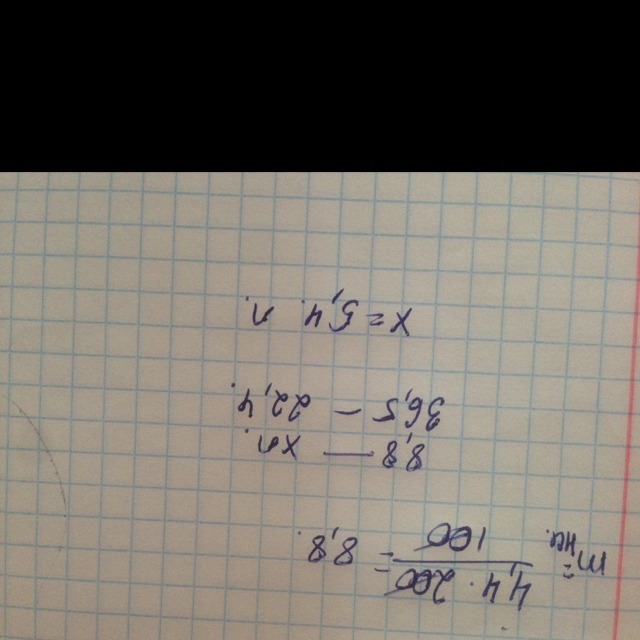 m HCl = 4,4 · 200 / 100 = 8,8.
8,8 — x л.
36,5 — 22,4.
x = 5,4. л.